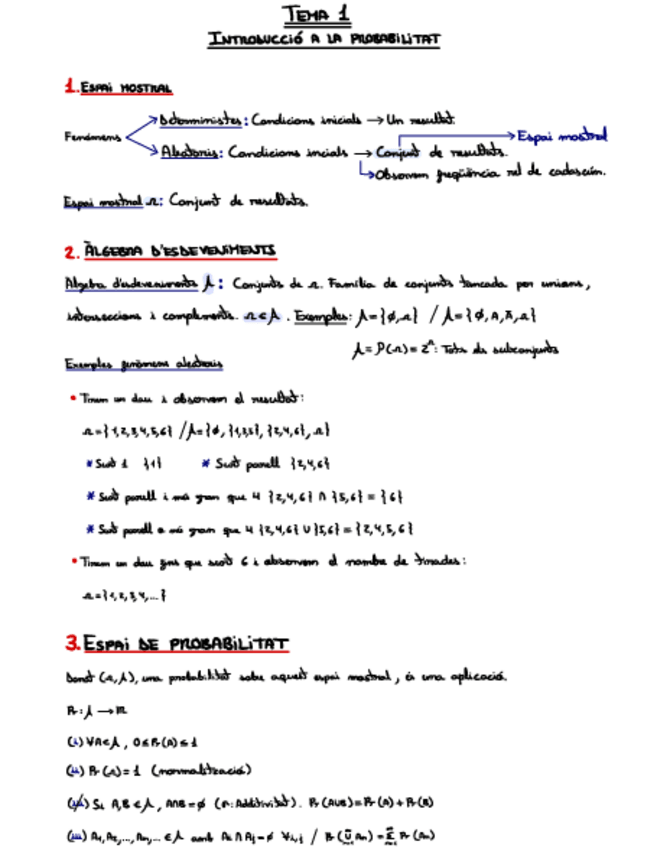 TEMA 1
INTRODUCCIÓ A LA PROBABILITAT
1. ESPAI MOSTRAL
Fenòmens
Deterministes: Condicions inicials → Un resultat.
Aleatoris: Condicions incials → Conjunt de resultats. → Espai mostral
↳ Observem freqüència rel de cadascún.
Espai mostral Ω: Conjunt de resultats.
2. ÀLGEBRA D'ESDEVENIMENTS
Àlgebra d'esdeveniments A: Conjunts de Ω. Família de conjunts tancada per unions,
interseccions i complements. Ω ∈ A. Exemples: A={∅,Ω} / A={∅, A, Ā, Ω}
A = P(Ω) = 2^Ω: Tots els subconjunts
Exemples fenòmens aleatoris
• Tirem un dau i observem el resultat:
Ω={1,2,3,4,5,6} / A={∅, {1,3,5}, {2,4,6}, Ω}
* Surt 1 {1} * Surt parell {2,4,6}
* Surt parell i més gran que 4 {2,4,6} ∩ {5,6} = {6}
* Surt parell o més gran que 4 {2,4,6} ∪ {5,6} = {2,4,5,6}
• Tirem un dau fins que surt 6 i observem el nombre de tirades:
Ω={1,2,3,4,...}
3. ESPAI DE PROBABILITAT
Donat (Ω, A), una probabilitat sobre aquest espai mostral, és una aplicació.
Pr: A → ℝ
(i) ∀A∈A, 0≤Pr(A)≤1
(ii) Pr(Ω)=1 (normalització)
(iii) Si A,B ∈ A, A∩B=∅ (σ: Additivitat). Pr(A∪B)=Pr(A)+Pr(B)
(iii) A₁,A₂,...,Aₙ,... ∈ A amb Aᵢ∩Aⱼ=∅ ∀i,j / Pr(⋃ₙ₌₁^∞ Aₙ)=Σₙ₌₁^∞ Pr(Aₙ)